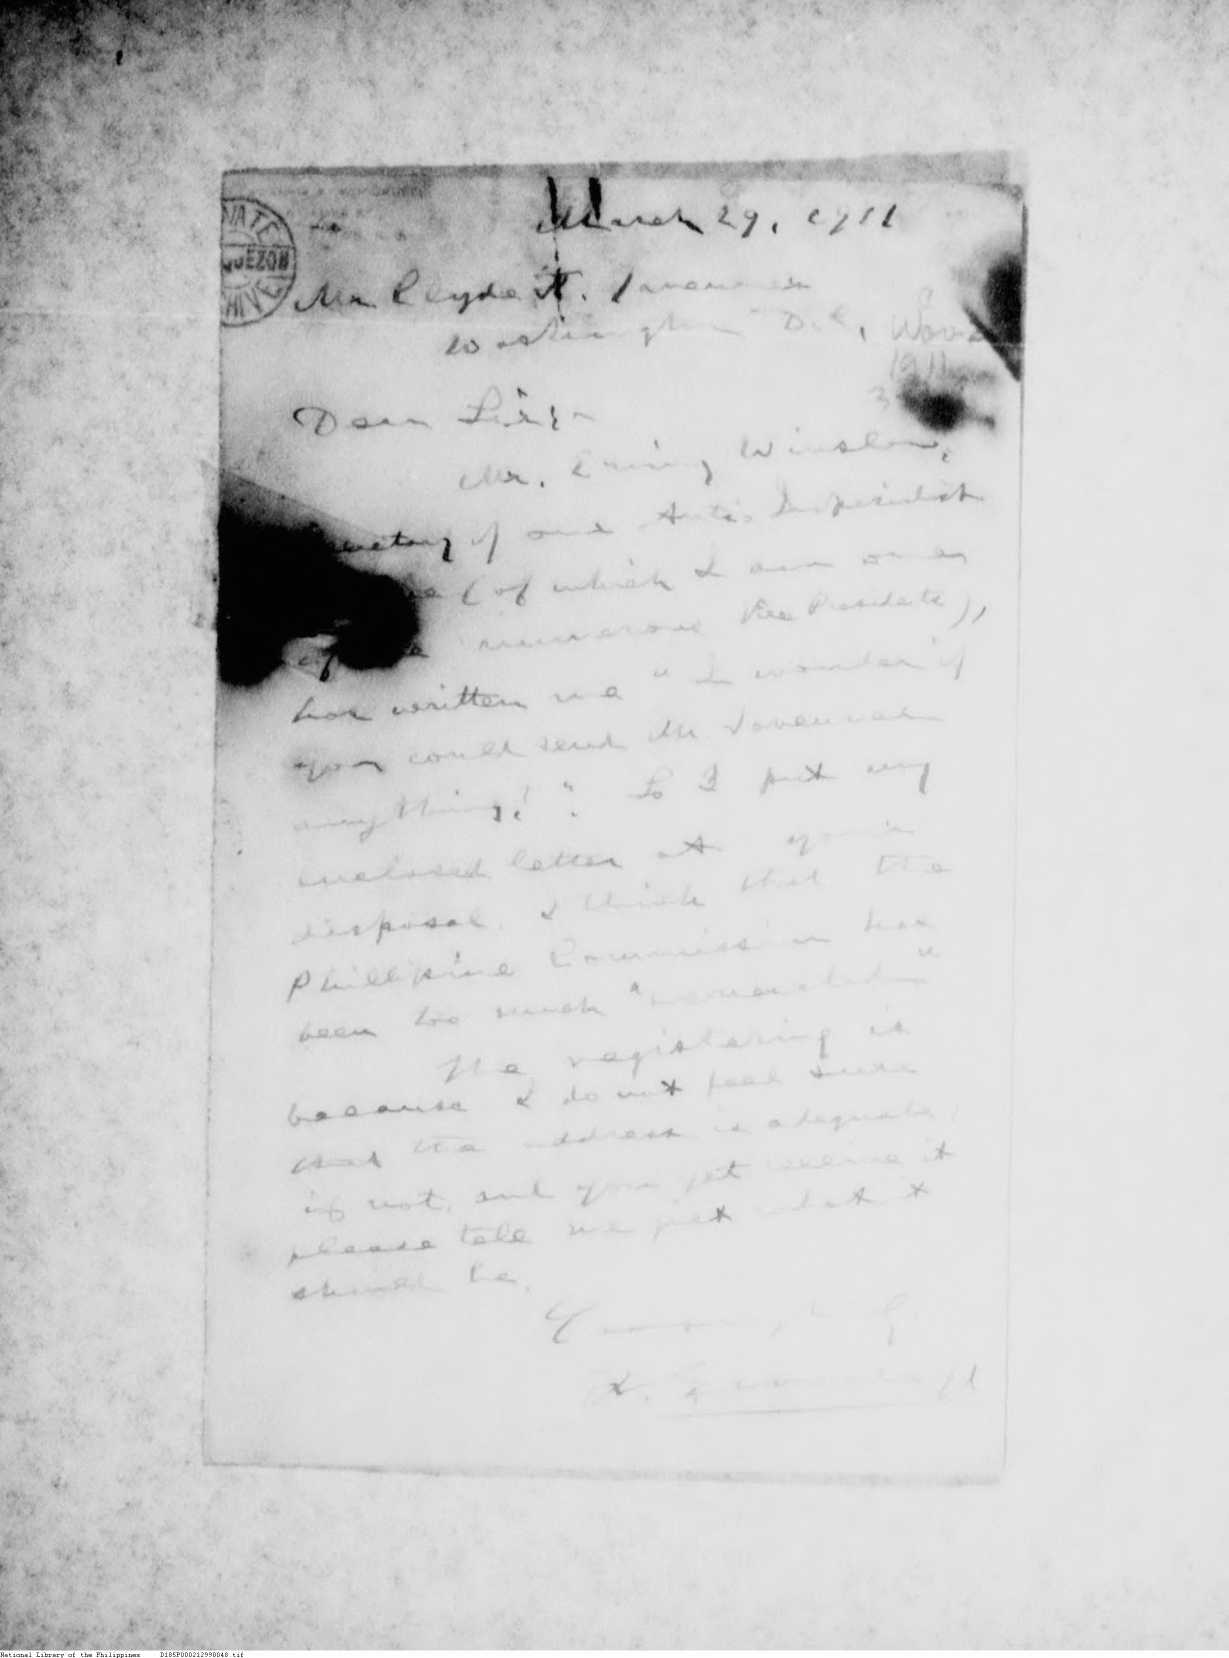 March 29, 1911
Mr Clyde H. Tavenner
Washington D.C.,
1911
3
Dear Sir:-
Mr. Erving Winslow,
Secretary of our Anti-Imperialist
(of which I am one
of the numerous Vice Presidents),
has written me "I wonder if
you could send Mr Tavenner
anything!". So I put my
enclosed letter at your
disposal. I think that the
Phillipine Commission has
been too much "
The registering is
because I do not feel sure
that the address is adequate,
if not, and you yet receive it
please tell me just what it
should be.
PRIVATE
QUEZON
ARCHIVE
National Library of the Philippines D185P000212990048.tif